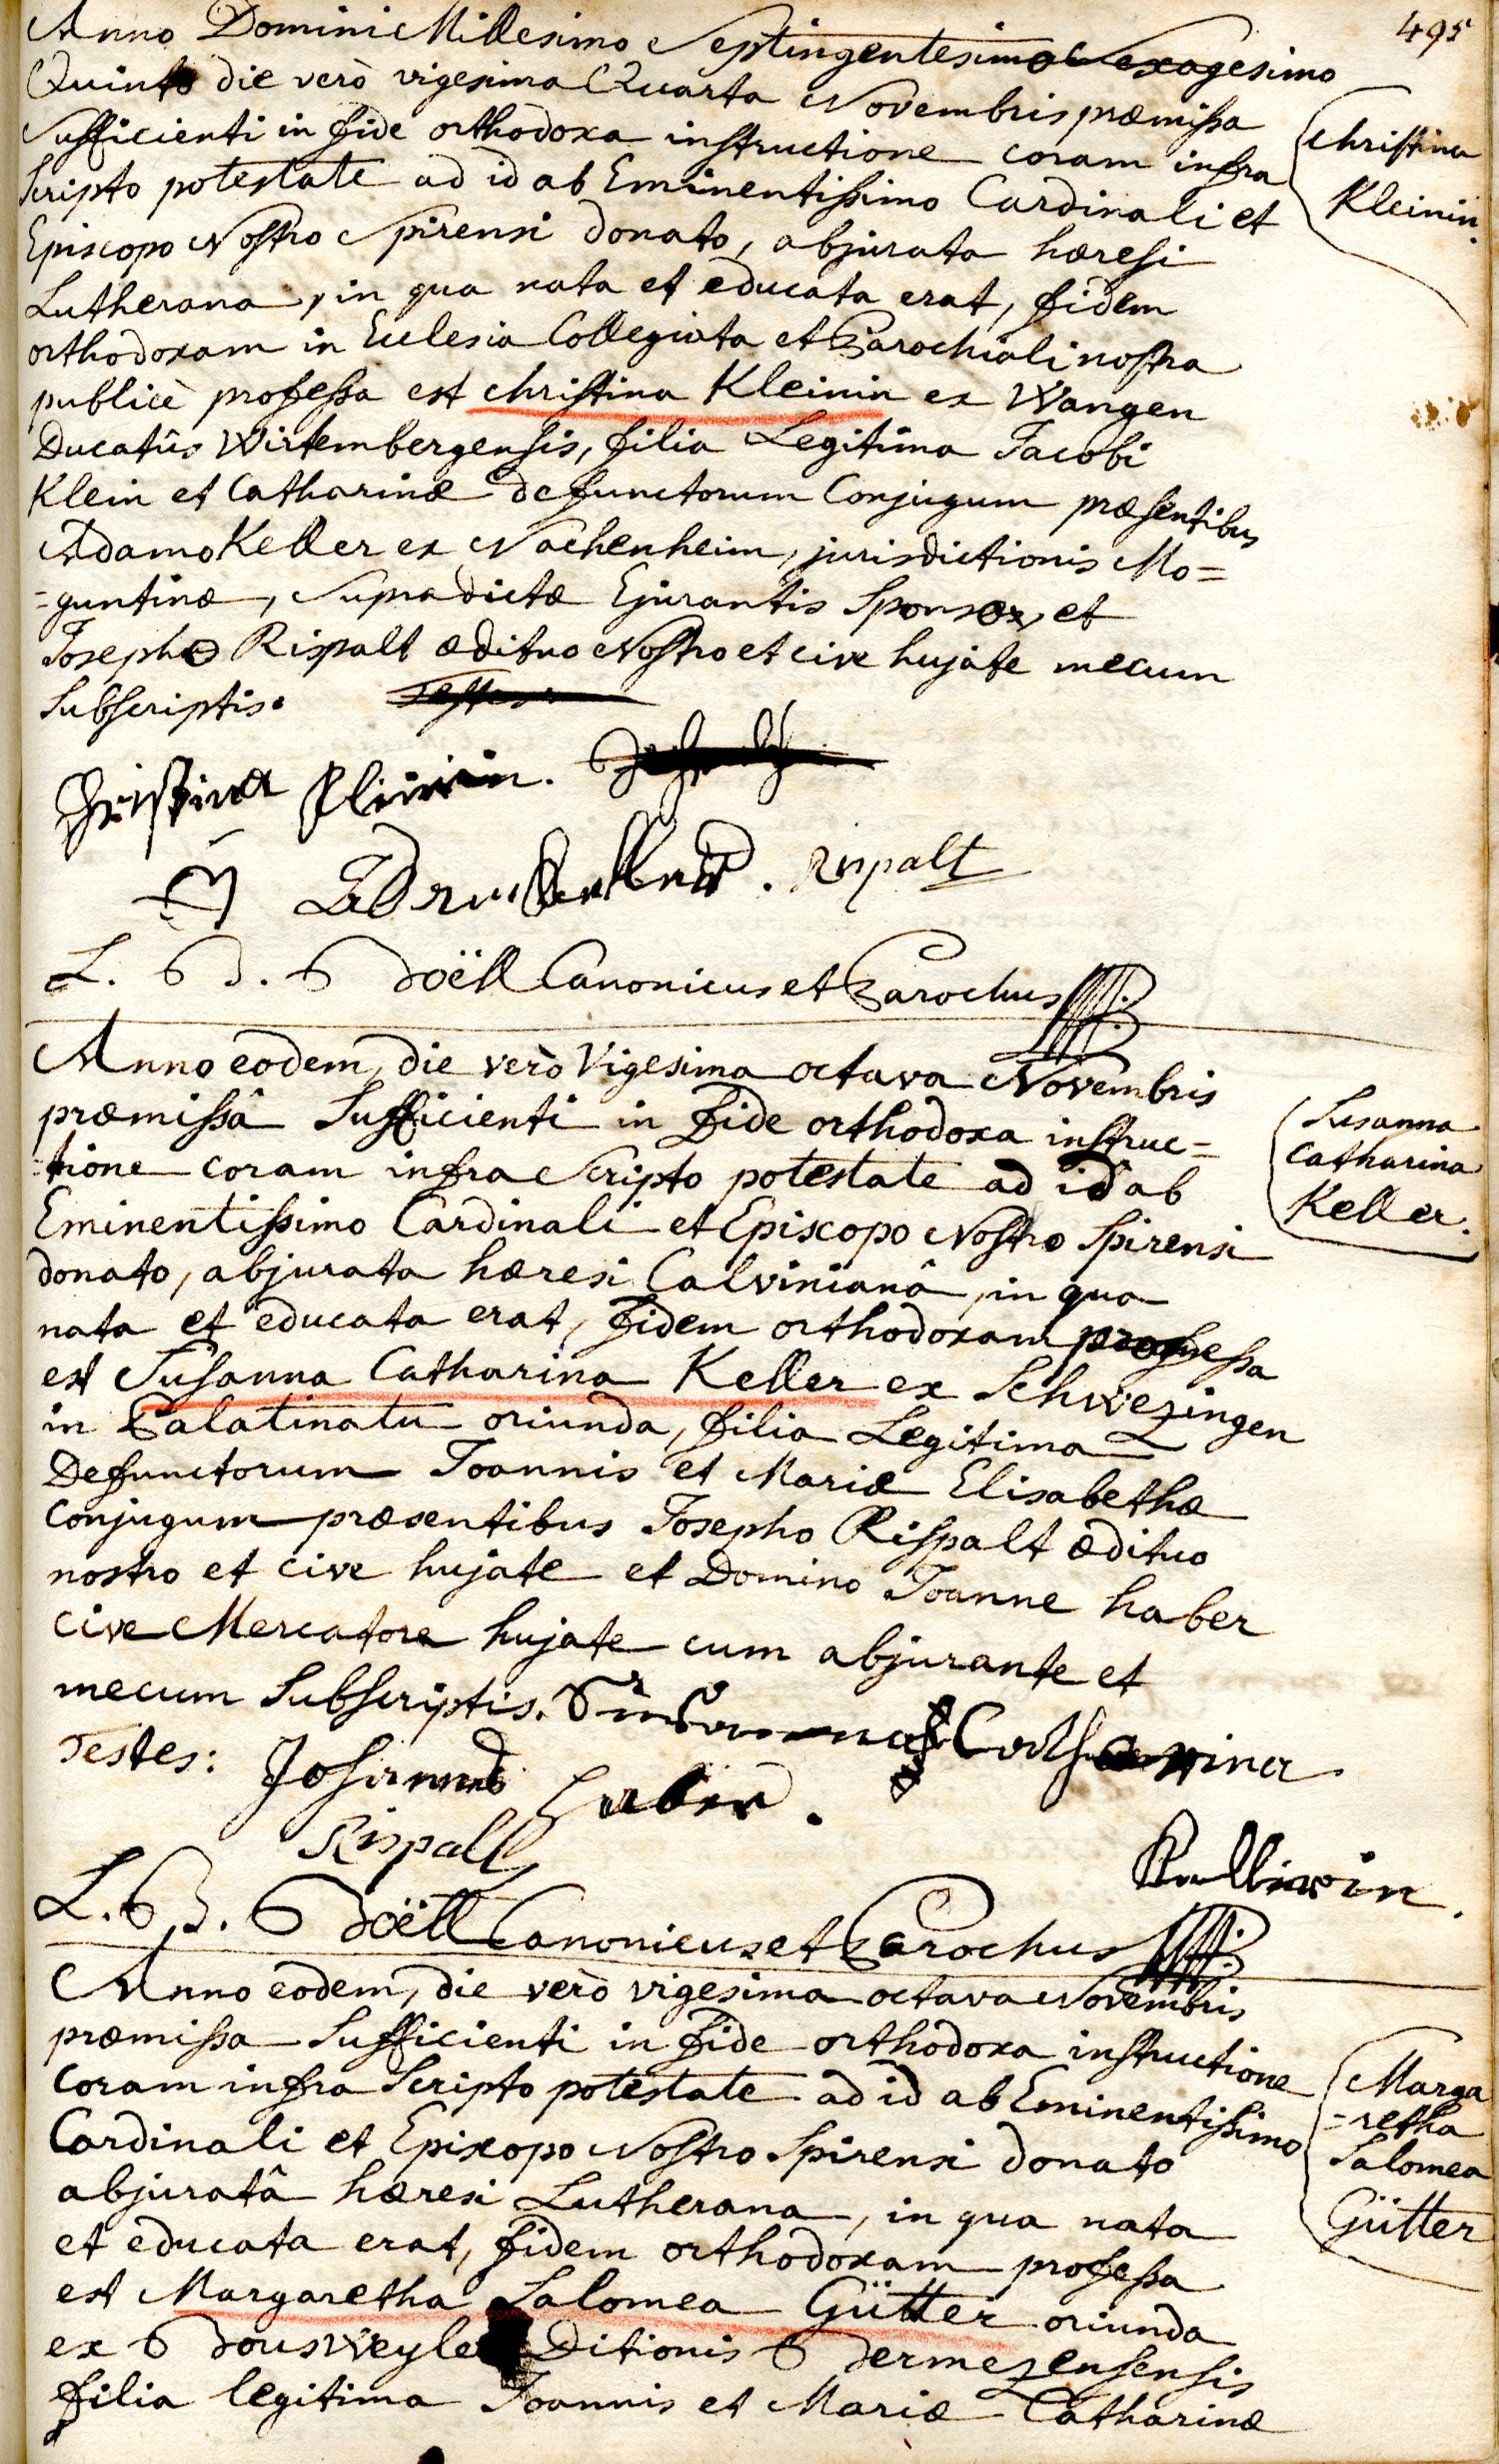 495
Anno Domini Millesimo Septingentesimo Sexagesimo
Quinto die verò vigesima Quarta Novembris præmissa
Sufficienti in fide orthodoxa instructione coram infra
Scripto potestate ad id ab Eminentissimo Cardinali et
Episcopo Nostro Spirensi donato, abjurata hæresi
Lutherana, in qua nata et educata erat, fidem
orthodoxam in Ecclesia Collegiata et Parochiali nostra
publicè professa est Christina Kleinin ex Wangen
Ducatûs Wirtembergensis, filia Legitima Jacobi
Klein et Catharinæ defunctorum Conjugum præsentibus
Adamo Keller ex Nachenheim, jurisdictionis Mo=
=guntinæ, Supradictæ Ejurantis Sponsor, et
Josepho Rispalt ædituo Nostro et cive hujate mecum
Subscriptis.
Christina
Kleinin.
Christina Kleinin.
Rispalt
L. B. Böell Canonicus et Parochus
Anno eodem, die verò Vigesima octava Novembris
præmissâ Sufficienti in fide orthodoxa instruc=
=tione coram infra Scripto potestate ad id ab
Eminentissimo Cardinali et Episcopo Nostro Spirensi
donato, abjurata hæresi Calvinianâ, in qua
nata et educata erat, fidem orthodoxam professa
est Susanna Catharina Keller ex Schwezingen
in Palatinatu oriunda, filia Legitima
Defunctorum Joannis et Mariæ Elisabethæ
Conjugum præsentibus Josepho Rispalt ædituo
nostro et cive hujate et Domino Joanne haber
cive Mercatore hujate cum abjurante et
mecum Subscriptis.
Susanna
Catharina
Keller.
Catharina
Testes: Johannes Haber.
Rispalt
L. B. Böell Canonicus et Parochus
Anno eodem, die verò vigesima octava Novembris
præmissa Sufficienti in fide orthodoxa instructione
coram infra Scripto potestate ad id ab Eminentissimo
Cardinali et Episcopo Nostro Spirensi donato
abjuratâ hæresi Lutherana, in qua nata
et educata erat, fidem orthodoxam professa
est Margaretha Salomea Gütter oriunda
ex Ditionis
filia legitima Joannis et Mariæ Catharinæ
Marga
=retha
Salomea
Gütter